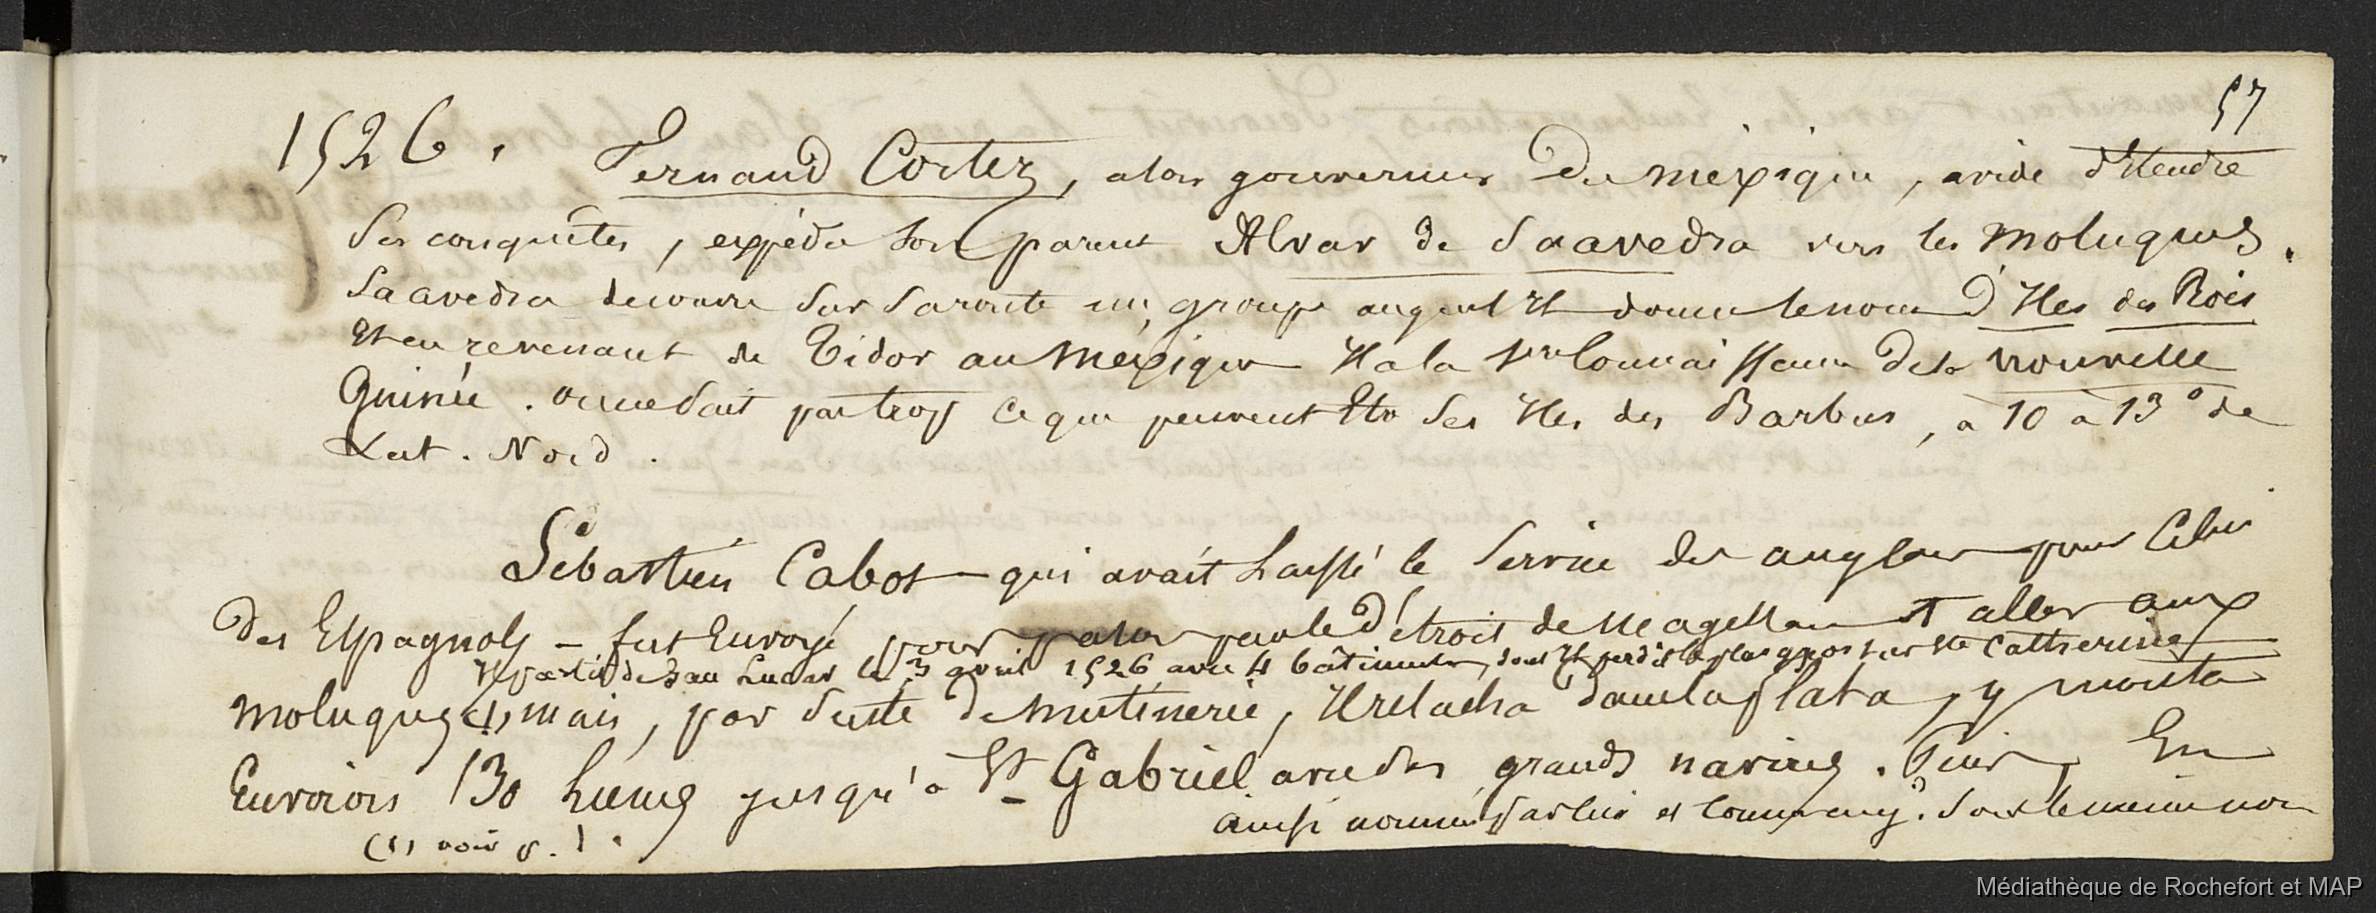 57
1526. Fernand Cortez, alors gouverneur du Méxique, avide d'étendre
ses conquêtes, expédia son parent Alvar de Saavedra vers les Moluques.
Saavedra decouvre sur sa route un groupe auquel il donne le nom d'Iles des Rois
Et en revenant de Tidor au Mexique Il a la 1ere Connaissance de la Nouvelle
Guinée. On ne sait pas trop ce que peuvent Etre ses Iles des Barbus, à 10 à 13° de
Lat. Nord.
Sébastien Cabot - qui avait laissé le Service des anglais pour Celui
des Espagnols - fut Envoyé pour passer par le Détroit de Magellan et aller aux
Il partit de San Lucar le 3 avril 1526 avec 4 bâtiments, dont Il perdit le plus gros sur Ste Catherine
Moluques (1) mais, par suite de mutinerie, Il relacha dans la Plata, y monta
Environs 130 Lieues jusqu'à St Gabriel avec des grands navires. Puis, En
ainsi nommé par lui et
(1) voir p. 1.